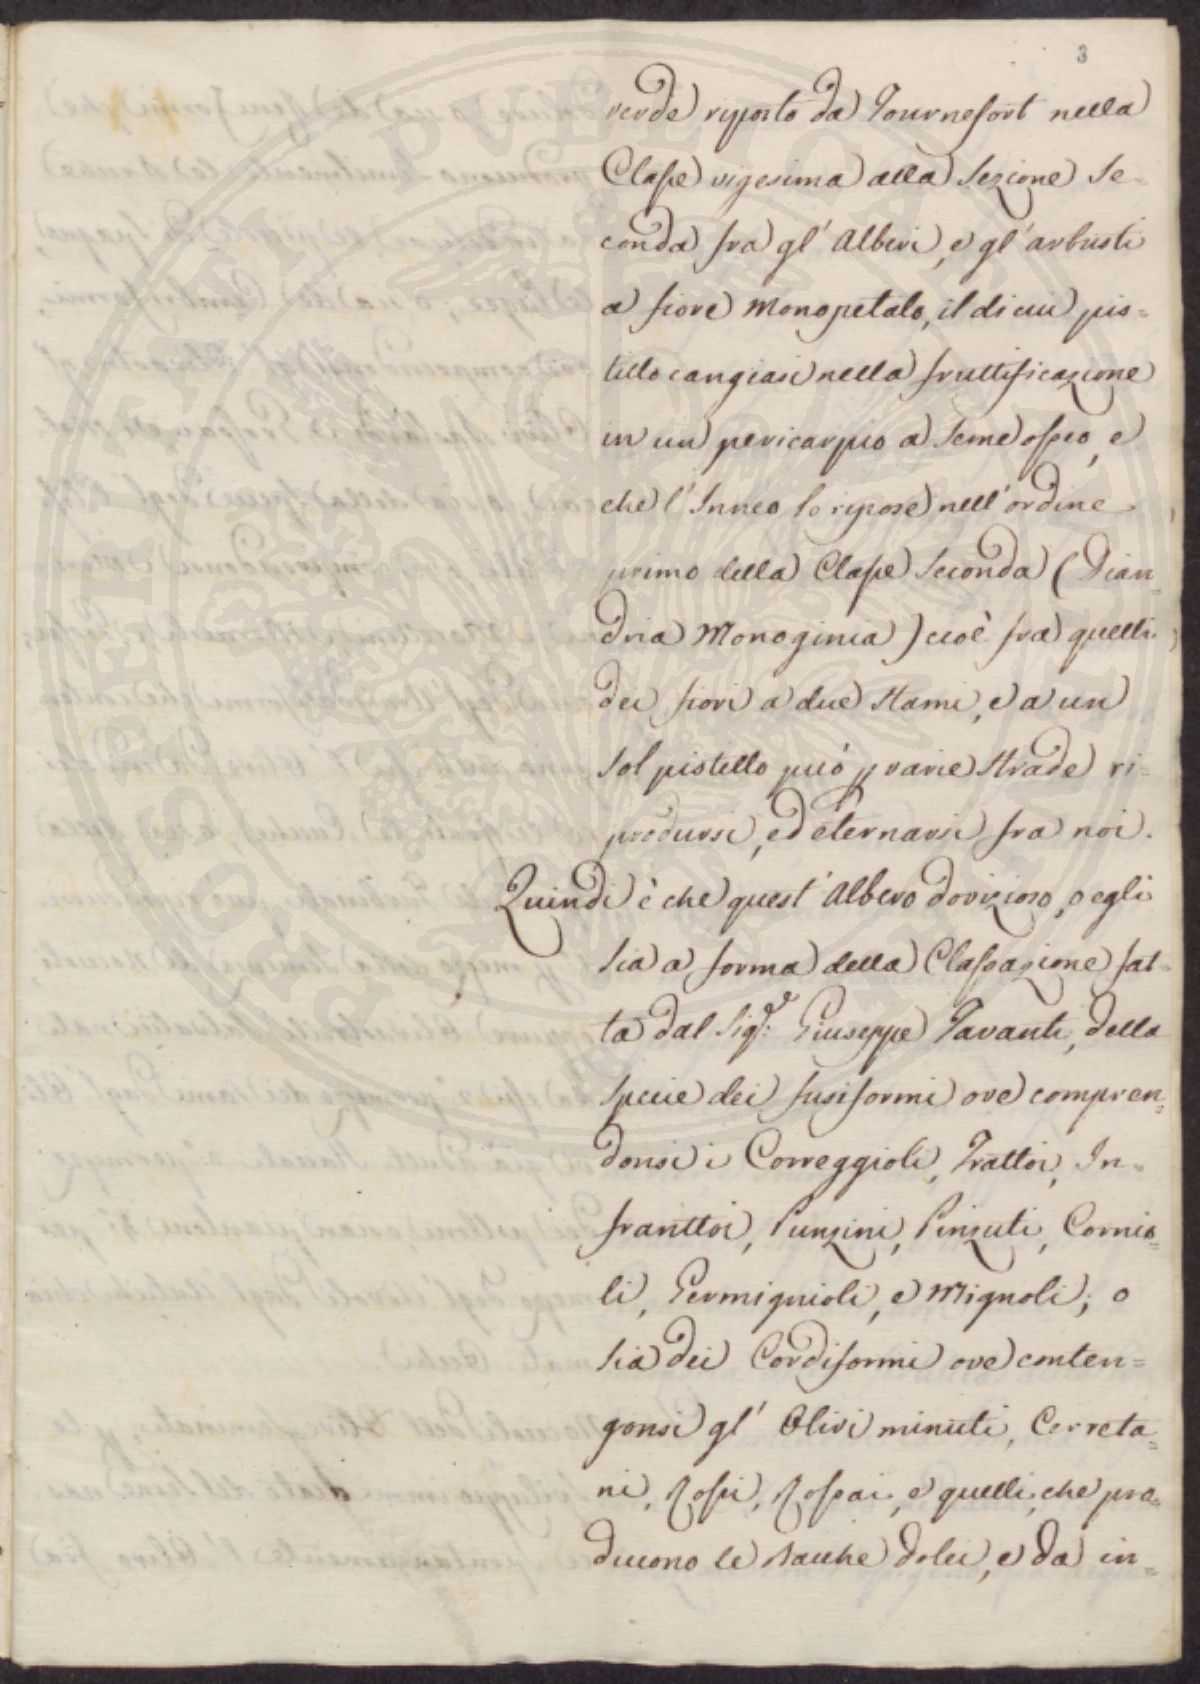 3
verde riposto da Tournefort nella
Classe vigesima alla Sezione Se-
conda fra gl' Alberi, e gl' arbusti
a fiore Monopetalo, il di cui pis-
tillo cangiasi nella fruttificazione
in un pericarpio a Seme osseo, e
che l' Inneo lo ripose nell' ordine
primo della Classe Seconda (Dian-
dria Monoginia) cioè fra quelli
dei fiori a due Stami, e a un
Sol pistello può p varie Strade ri-
prodursi, ed eternarsi fra noi.
Quindi è che quest' Albero dovizioso, o egli
Sia a forma della Classazione fat-
ta dal Sig.e Giuseppe Tavanti, della
Specie dei fusiformi ove compren-
donsi i Correggioli, Frattoi, In-
franttoi, Punzini, Pinzuti, Cornio-
li, Germignioli, e Mignoli; o
Sia dei Cordiformi ove conten=
gonsi gl' Olivi minuti, Correta-
ni, Rossi, Rossai, e quelli che pro-
ducono le bacche dolci, e da in=
PROSPERI VALENTI
PUBLICAE